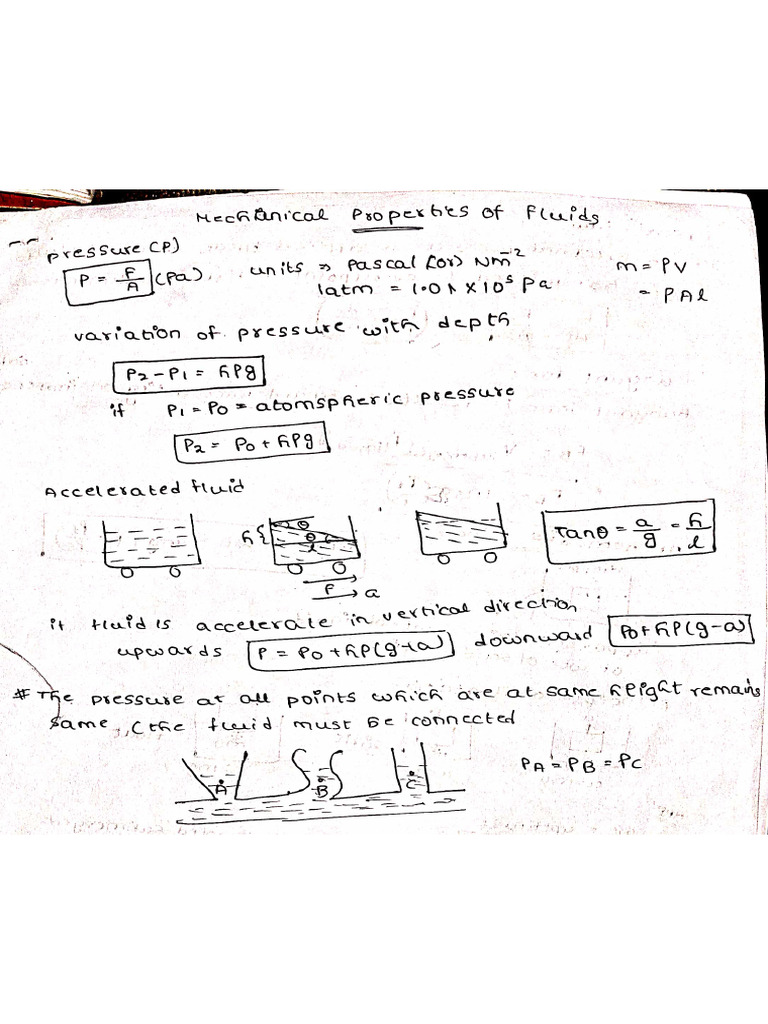 Mechanical Properties of Fluids
-- pressure (P)
P = F/A (Pa) units ⇒ Pascal (or) Nm⁻²
1atm = 1.01 x 10⁵ Pa
m = ρV
= ρAl
variation of pressure with depth
P₂ - P₁ = hρg
if P₁ = P₀ = atomspheric pressure
P₂ = P₀ + hρg
Accelerated fluid
h { θ θ l
F → a
Tanθ = a/g = h/l
if fluid is accelerate in vertical direction
upwards P = P₀ + hρ(g+a) downward P₀ + hρ(g-a)
# The pressure at all points which are at same height remains
same, (the fluid must be connected
A B C
PA = PB = PC